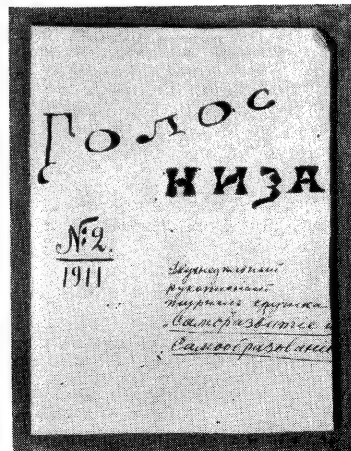 Голос
низа
№2.
1911
Двунедѣльный
рукописный
журналъ кружка
„Саморазвитие и
Самообразование